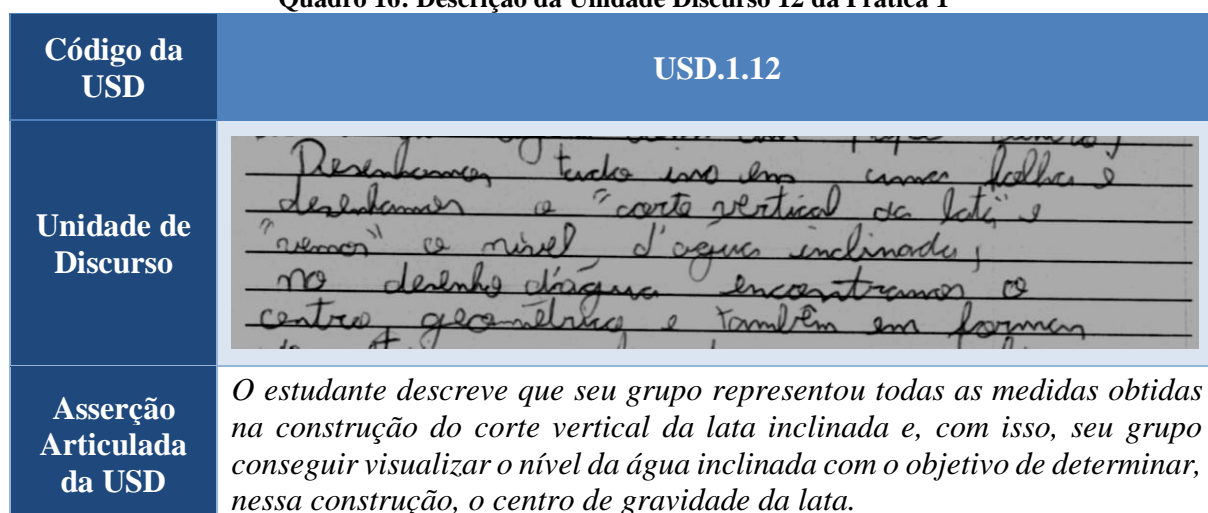 Quadro 16: Descrição da Unidade Discurso 12 da Prática 1
Código da
USD
USD.1.12
Unidade de
Discurso
Desenhamos tudo isso em uma folha e
desenhamos o "corte vertical da lata" e
"vemos" o nível d'água inclinada,
no desenho d'água encontramos o
centro geométrico e também em forma
Asserção
Articulada
da USD
O estudante descreve que seu grupo representou todas as medidas obtidas
na construção do corte vertical da lata inclinada e, com isso, seu grupo
conseguir visualizar o nível da água inclinada com o objetivo de determinar,
nessa construção, o centro de gravidade da lata.